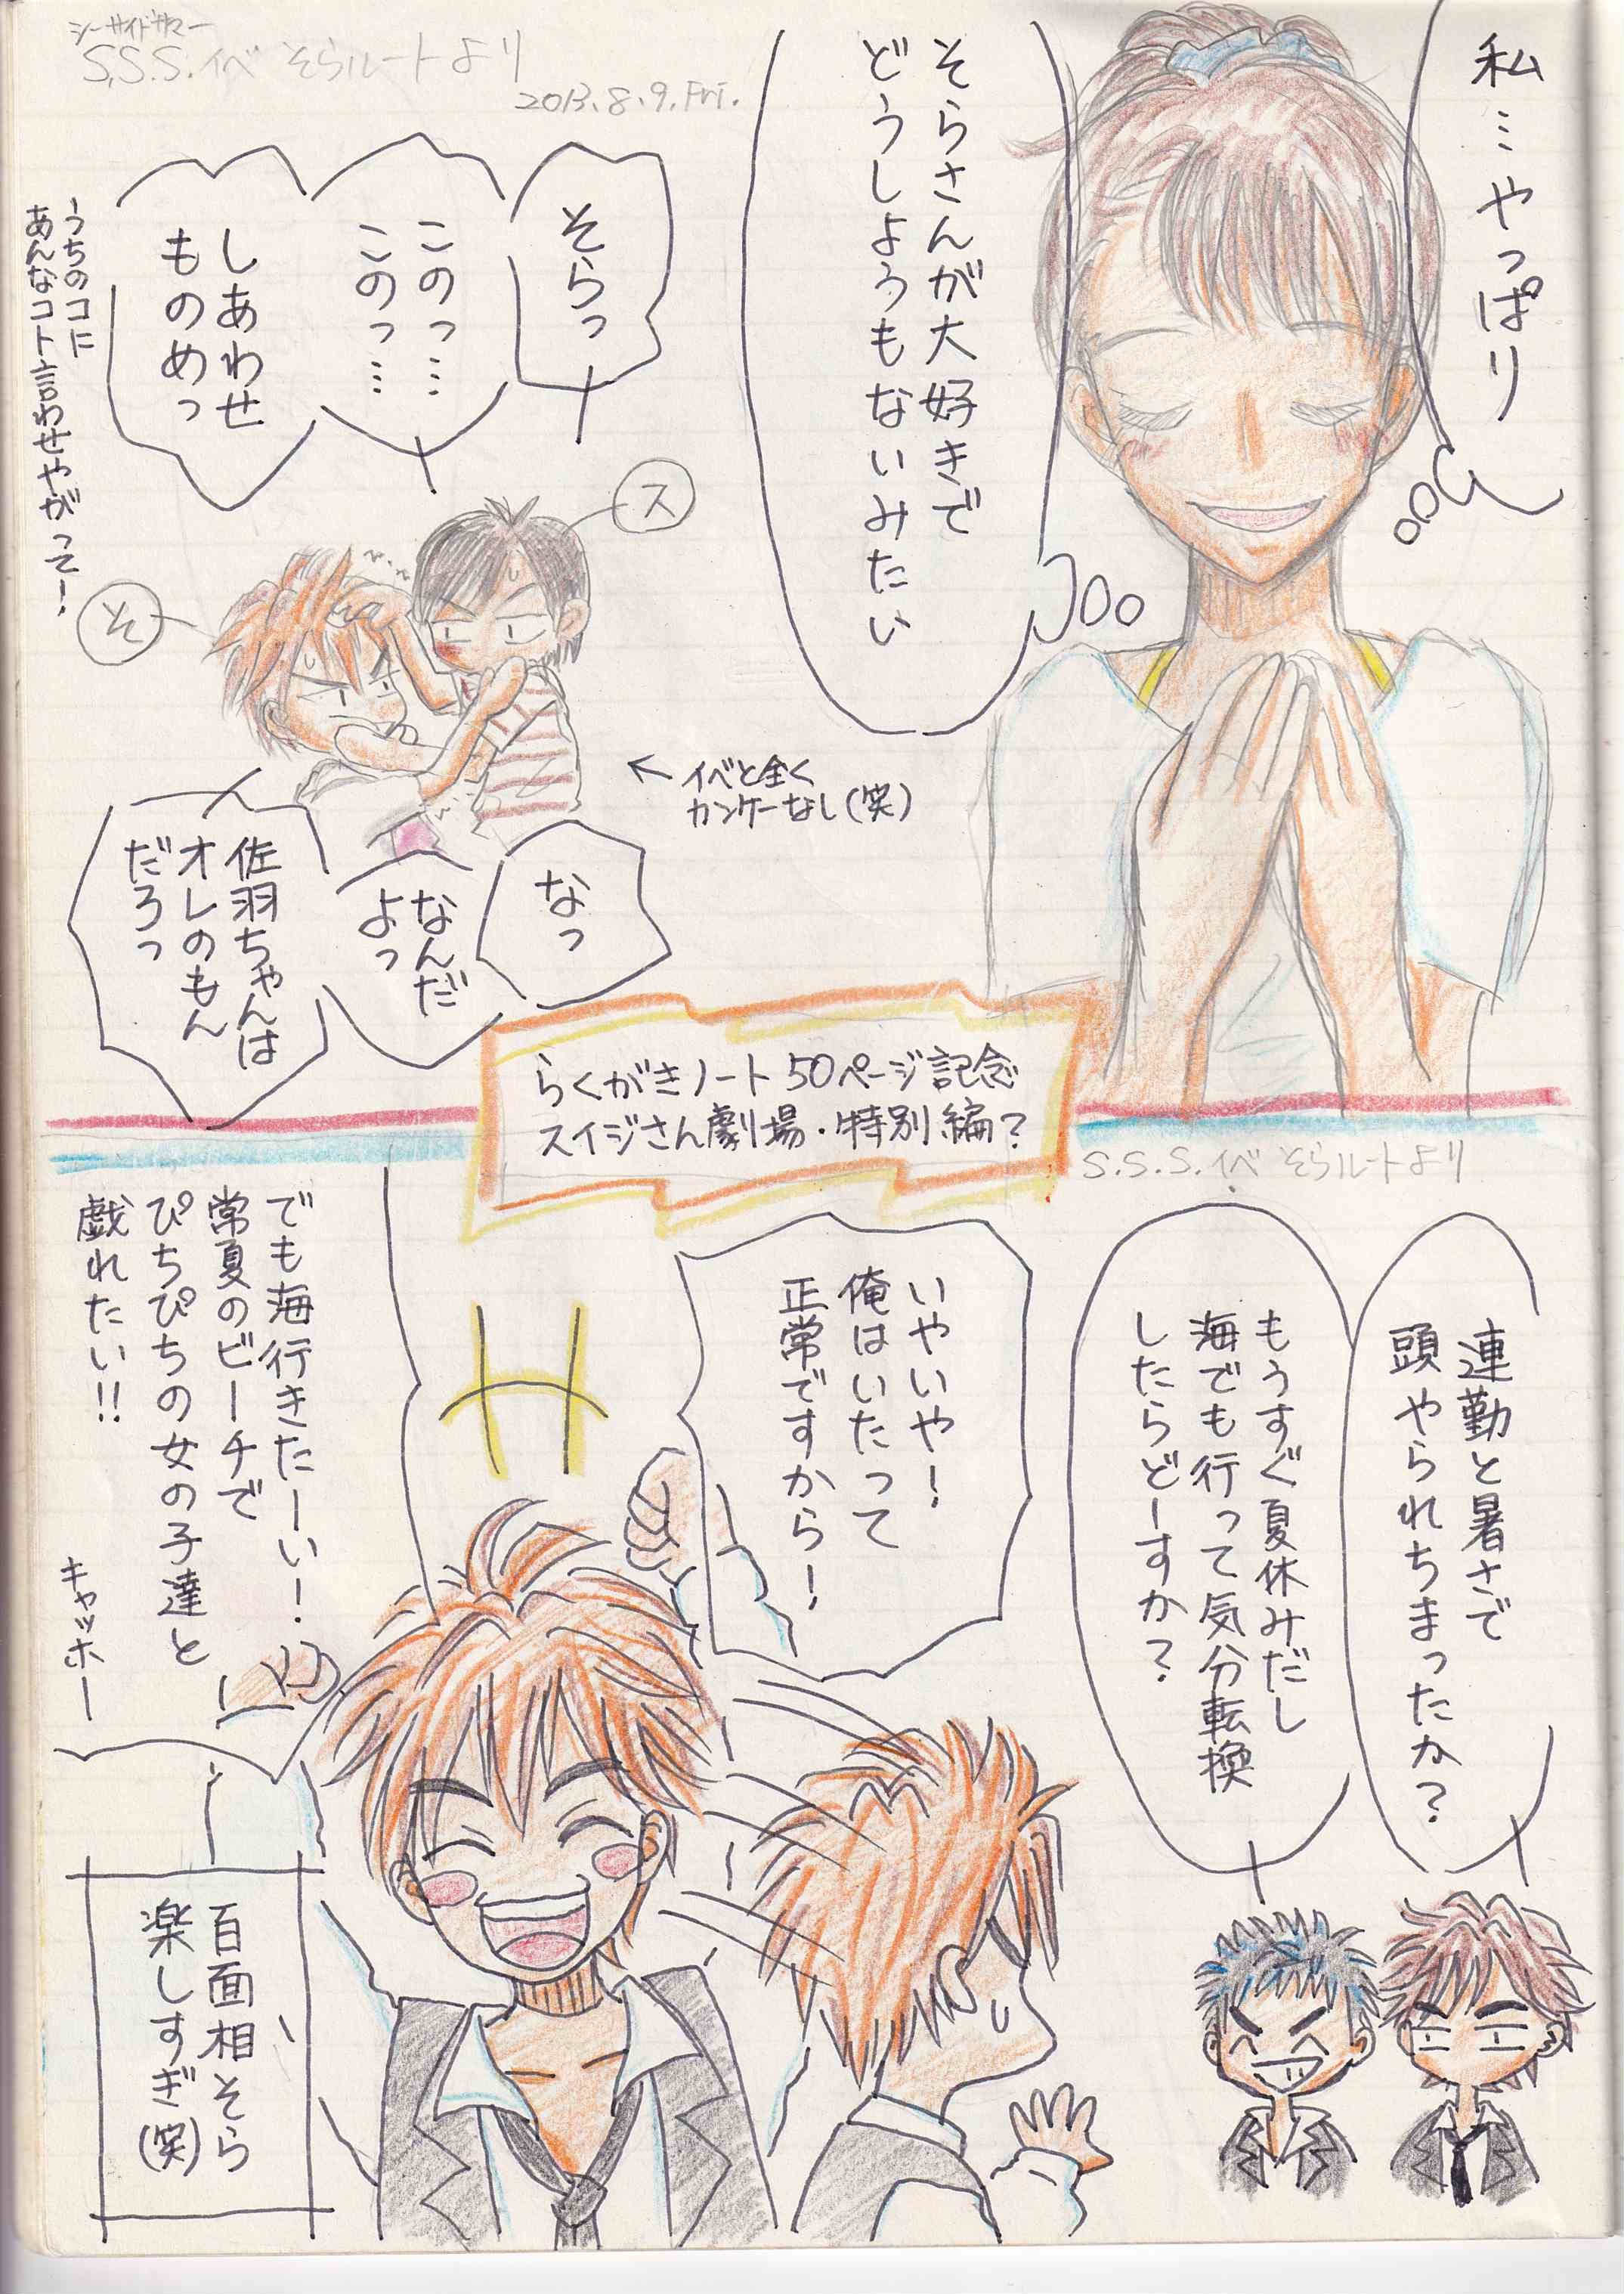 シーサイドサマー
S.S.S.イベ そらルートより
2013.8.9.Fri.
私…やっぱり
そらさんが大好きで
どうしようもないみたい
そらっ
このっ…
このっ…
しあわせ
ものめっ
うちのコに
あんなコト言わせやがって!
ス
そ
←イベと全く
カンケーなし(笑)
なっ
なんだ
よっ
佐羽ちゃんは
オレのもん
だろっ
らくがきノート50ページ記念
スイジさん劇場・特別編?
S.S.S.イベ そらルートより
連勤と暑さで
頭やられちまったか?
もうすぐ夏休みだし
海でも行って気分転換
したらどーすか?
いやいや!
俺はいたって
正常ですから!
でも海行きたーい!
常夏のビーチで
ぴちぴちの女の子達と
戯れたい!!
キャッホー
百面相そら
楽しすぎ(笑)